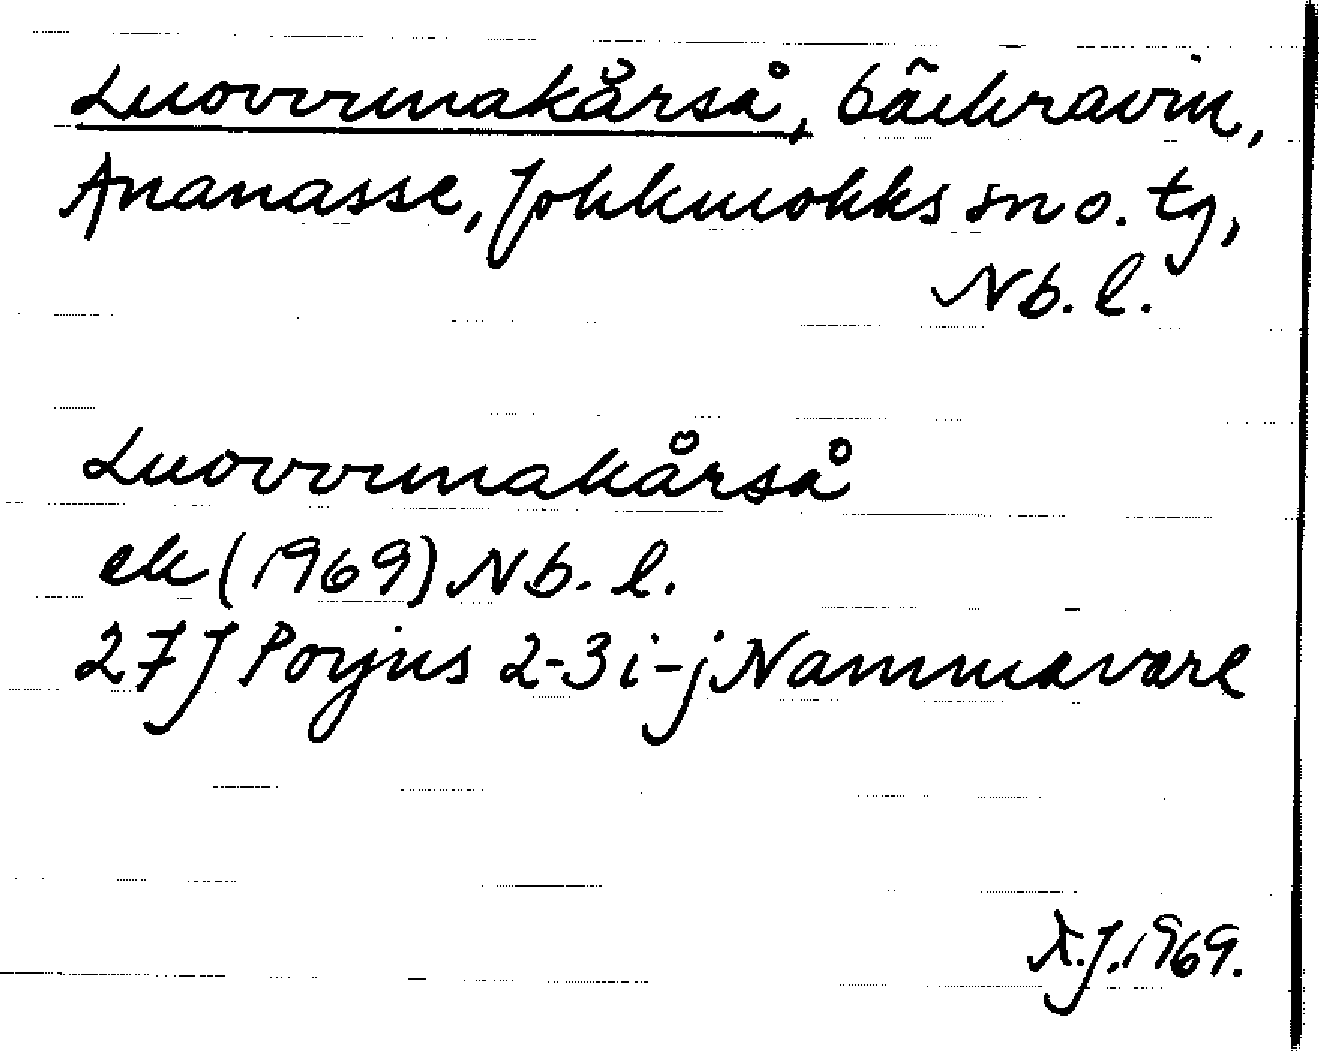 Luovvunakårså, bäckravin,
Ananasse, Johkmohkks sn o. tg,
Nb. l.
Luovvunakårså
ek (1969) Nb. l.
27 J Porjus 2-3 i-j Nammavare
A.J. 1969.